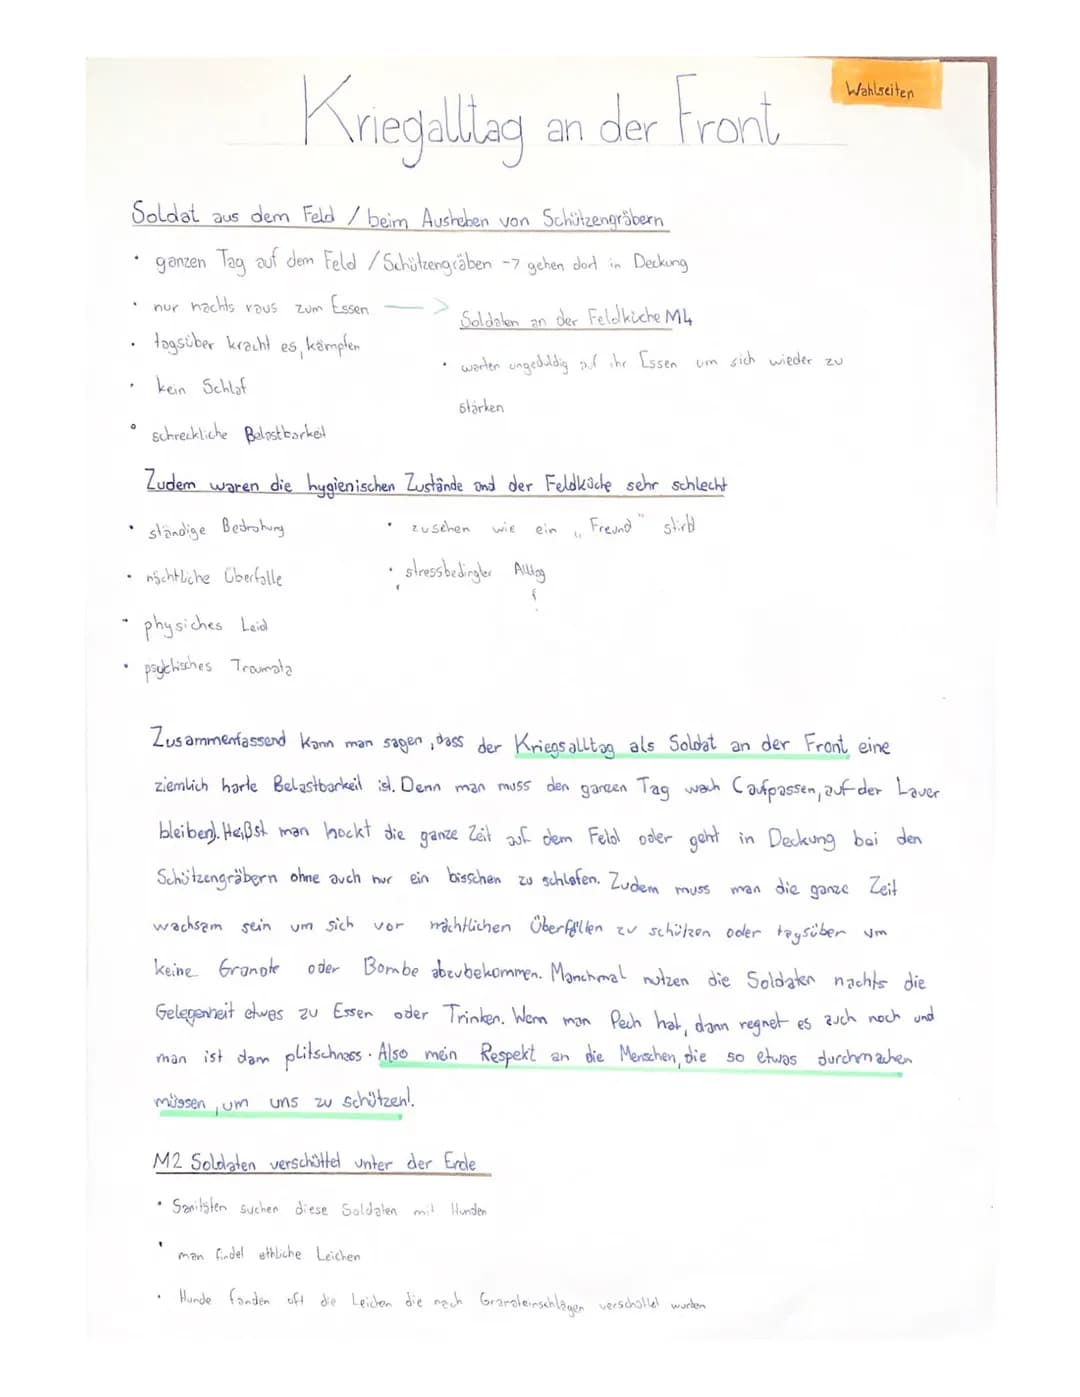 Wahlseiten
Kriegalltag an der Front
Soldat aus dem Feld / beim Ausheben von Schützengräbern
• ganzen Tag auf dem Feld / Schützengräben -> gehen dort in Deckung
• nur nachts raus zum Essen ->
Soldaten an der Feldküche M4
• tagsüber kracht es, kämpfen
• warten ungeduldig auf ihr Essen um sich wieder zu
stärken
• kein Schlaf
• schreckliche Belastbarkeit
Zudem waren die hygienischen Zustände und der Feldküche sehr schlecht
• ständige Bedrohung
• zusehen wie ein „Freund" stirbt
• nächtliche Überfälle
• stressbedingter Alltag
• physiches Leid
• psychisches Traumata
Zusammenfassend kann man sagen, dass der Kriegsalltag als Soldat an der Front eine
ziemlich harte Belastbarkeit ist. Denn man muss den ganzen Tag wach (aufpassen, auf der Lauer
bleiben). Heißst man hockt die ganze Zeit auf dem Feld oder geht in Deckung bei den
Schützengräbern ohne auch nur ein bisschen zu schlafen. Zudem muss man die ganze Zeit
wachsam sein um sich vor nächtlichen Überfällen zu schützen oder tagsüber um
keine Granate oder Bombe abzubekommen. Manchmal nutzen die Soldaten nachts die
Gelegenheit etwas zu Essen oder Trinken. Wenn man Pech hat, dann regnet es auch noch und
man ist dann plitschnass. Also mein Respekt an die Menschen, die so etwas durchmachen
müssen, um uns zu schützen!.
M2 Soldaten verschüttet unter der Erde
• Sanitäten suchen diese Soldaten mit Hunden
• man findet ethliche Leichen
• Hunde fanden oft die Leichen die nach Granateinschlägen verschüttet wurden